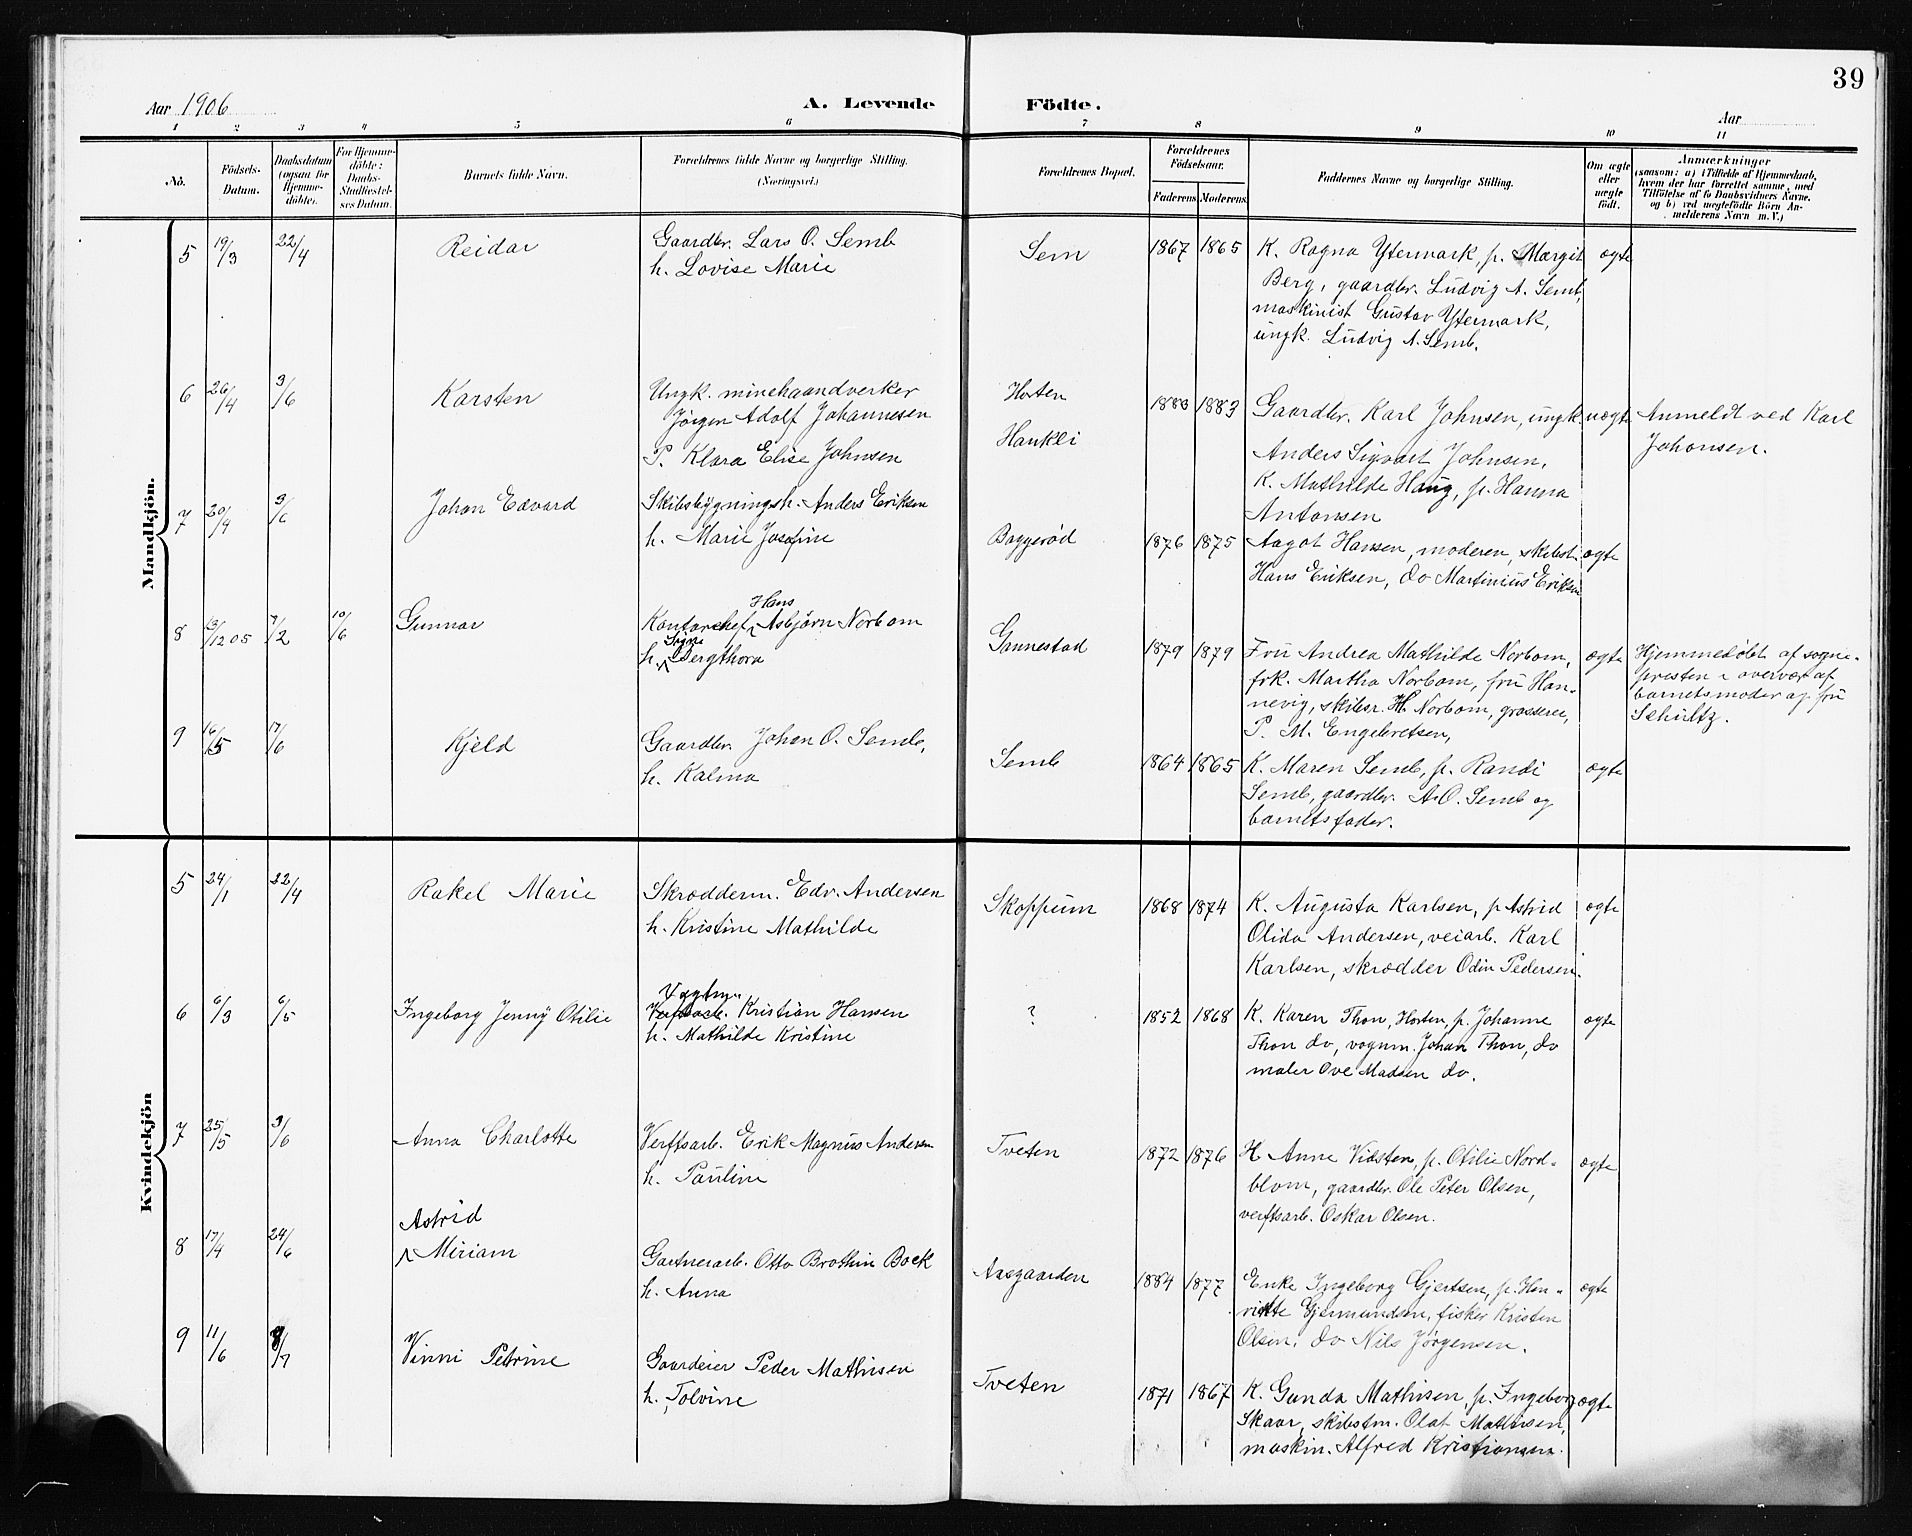 39
Aar 1906
A. Levende
Födte.
Aar
1 2 3 4 5 6 7 8 9 10 11
No.
Födsels-
Datum.
Daabsdatum
(ogsaa for
Hjemme-
döbte).
For Hjemme-
döbte:
Daabs-
Stadfæstel-
ses Datum.
Barnets fulde Navn.
Forældrenes fulde Navne og borgerlige Stilling.
(Næringsvei.)
Forældrenes Bopæl.
Forældrenes
Födselsaar.
Faderens Moderens
Faddernes Navne og borgerlige Stilling.
Om ægte
eller
uægte
født.
Anmærkninger
(saasom: a) i Tilfælde af Hjemmedaab,
hvem der har forrettet samme, med
Tilföielse af to Daabsvidners Navne,
og b) ved uægtefödte Börn An-
melderens Navn m. V.)
Mandkjön.
5 19/3 22/4 Reidar
Gaardbr. Lars O. Semb
h. Lovise Marie
Sem 1867 1865
K. Ragna Ytermark, p. Margit
Berg, gaardbr. Ludvig A. Semb,
maskinist Gustav Ytermark,
ungk. Ludvig A. Semb.
ægte
6 26/4 3/6 Karsten
Ungk. minehaandverker
Jörgen Adolf Johannesen
P. Klara Elise Johnsen
Horten
Haukli
1883 1883
Gaardbr. Karl Johnsen, ungk.
Anders Sigvart Johnsen,
K. Mathilde Haug, p. Hanna
Antonsen
uægte
Anmeldt ved Karl
Johansen.
7 20/4 3/6 Johan Edvard
Skibsbygningsh. Anders Eriksen
h. Marie Josefine
Boggerød 1876 1875
Aagot Hansen, moderen, skibst.
Hans Eriksen, do Martinius Eriksen
ægte
8 13/12 05 7/2 10/6 Gunnar
Hans
Kontorchef Asbjørn Norbom
Signe
h. Bergthora
Gannestad 1879 1879
Fru Andrea Mathilde Norbom,
frk. Martha Norbom, fru Han-
nevig, skibsr. H. Norbom, grosserer,
P. M. Engebretsen,
ægte
Hjemmedøbt af sogne-
presten i overvær af
barnets moder og fru
Schultz.
9 16/5 17/6 Kjeld
Gaardbr. Johan O. Semb,
h. Kalma
Semb 1864 1865
K. Maren Semb, p. Randi
Semb, gaardbr. A. O. Semb og
barnets fader.
ægte
Kvindekjön
5 24/1 22/4 Rakel Marie
Skrædderm. Edv. Andersen
h. Kristine Mathilde
Skoppum 1868 1874
K. Augusta Karlsen, p. Astrid
Olida Andersen, veiarb. Karl
Karlsen, skrædder Odin Pedersen.
ægte
6 6/3 6/5 Ingeborg Jenny Otilie
Vagtm.
Verftsarb. Kristian Hansen
h. Mathilde Kristine
? 1852 1868
K. Karen Thon, Horten, p. Johanne
Thon do, vognm. Johan Thon, do
maler Ove Madsen do.
ægte
7 25/5 3/6 Anna Charlotte
Verftsarb. Erik Magnus Andersen
h. Pauline
Tveten 1872 1876
H. Anne Vidsten, p. Otilie Nord-
blom, gaardbr. Ole Peter Olsen,
verftsarb. Oskar Olsen.
ægte
8 17/4 24/6 Astrid
Miriam
Gartnerarb. Otto Brothin Bock
h. Anna
Aasgaarden 1884 1877
Enke Ingeborg Gjertsen, p. Hen-
riette Gjermundsen, fisker Kristen
Olsen, do Nils Jørgensen.
ægte
9 11/6 8/7 Vinni Petrine
Gaardeier Peder Mathisen
h. Tolvine
Tveten 1871 1867
K. Gunda Mathisen, p. Ingeborg
Skaar, skibstm. Olaf Mathisen,
maskin. Alfred Kristiansen.
ægte